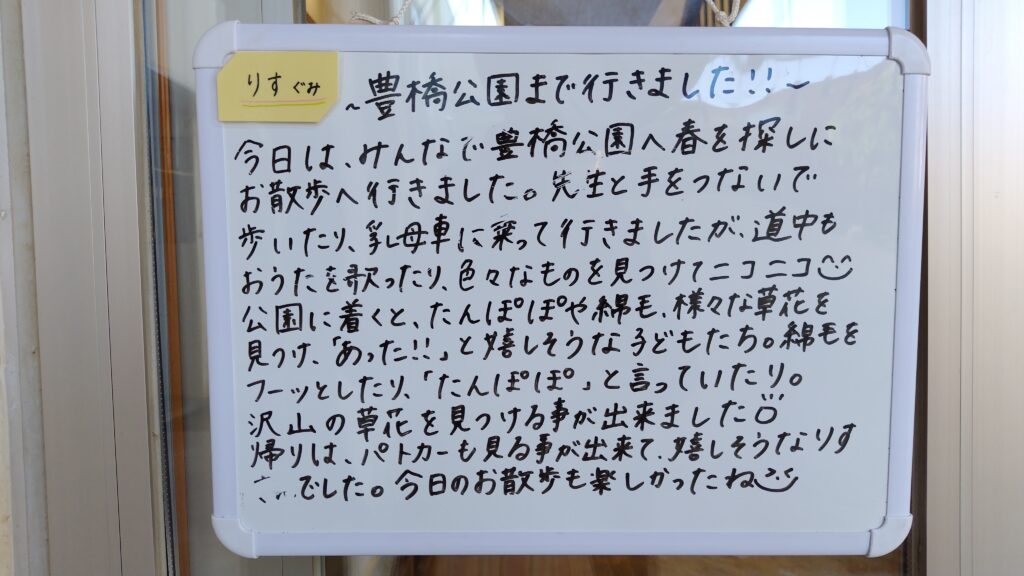 りすぐみ
~豊橋公園まで行きました!!~
今日は、みんなで豊橋公園へ春を探しに
お散歩へ行きました。先生と手をつないで
歩いたり、乳母車に乗って行きましたが、道中も
おうたを歌ったり、色々なものを見つけてニコニコ
公園に着くと、たんぽぽや綿毛、様々な草花を
見つけ、「あった!!」と嬉しそうな子どもたち。綿毛を
フーッとしたり、「たんぽぽ」と言っていたり。
沢山の草花を見つける事が出来ました
帰りは、パトカーも見る事が出来て、嬉しそうなりす
でした。今日のお散歩も楽しかったね